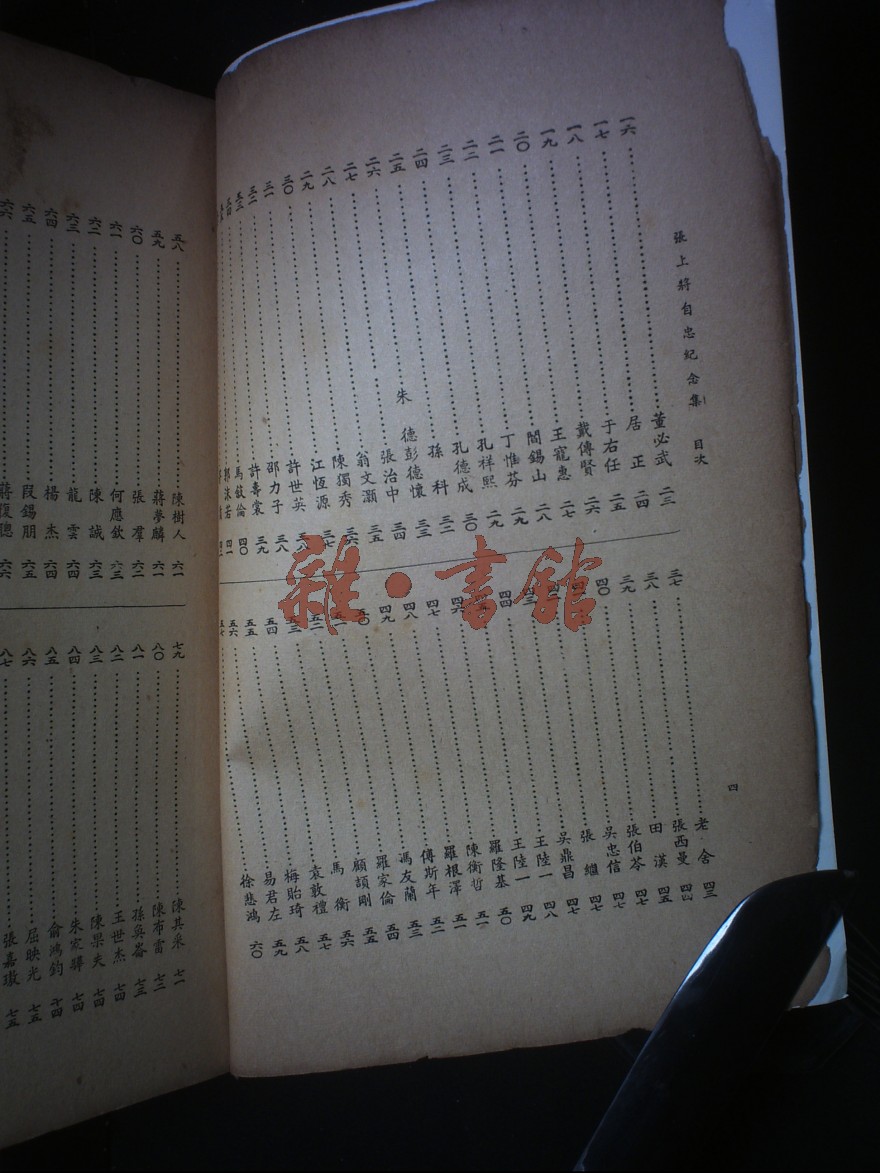 張上將自忠紀念集 目次
四
一六 董必武 二三
一七 居正 二四
一八 于右任 二五
一九 戴傳賢 二六
二〇 王寵惠 二七
二一 閻錫山 二八
二二 丁惟芬 二九
二三 孔祥熙 二九
二四 孔德成 三〇
二五 孫科 三二
二六 朱德彭德懷 三三
二七 張治中 三四
二八 翁文灝 三五
二九 陳獨秀 三六
三〇 江恆源 三七
三一 許世英 三八
三二 邵力子 三八
三三 許壽裳 三九
馬敘倫 四〇
郭沫若 四一
三七 老舍 四三
三八 張西曼 四四
三九 田漢 四五
四〇 張伯苓 四七
吳忠信 四七
張繼 四七
吳鼎昌 四七
四四 王陸一 四八
王陸一 四九
四六 羅隆基 五〇
四七 陳衡哲 五一
四八 羅根澤 五一
四九 傅斯年 五二
五〇 馮友蘭 五三
五一 羅家倫 五四
五二 顧頡剛 五五
五三 馬衡 五六
五四 袁敦禮 五七
五五 梅貽琦 五八
五六 易君左 五九
五七 徐悲鴻 六〇
五八 陳樹人 六一
五九 蔣夢麟 六一
六〇 張羣 六二
六一 何應欽 六三
六二 陳誠 六三
六三 龍雲 六四
六四 楊杰 六四
六五 段錫朋 六五
六六 蔣復聰 六六
七九 陳其采 七一
八〇 陳布雷 七二
八一 孫奐崙 七三
八二 王世杰 七四
八三 陳果夫 七四
八四 朱家驊 七四
八五 俞鴻鈞 七四
八六 屈映光 七五
八七 張嘉璈 七五
雜·書館